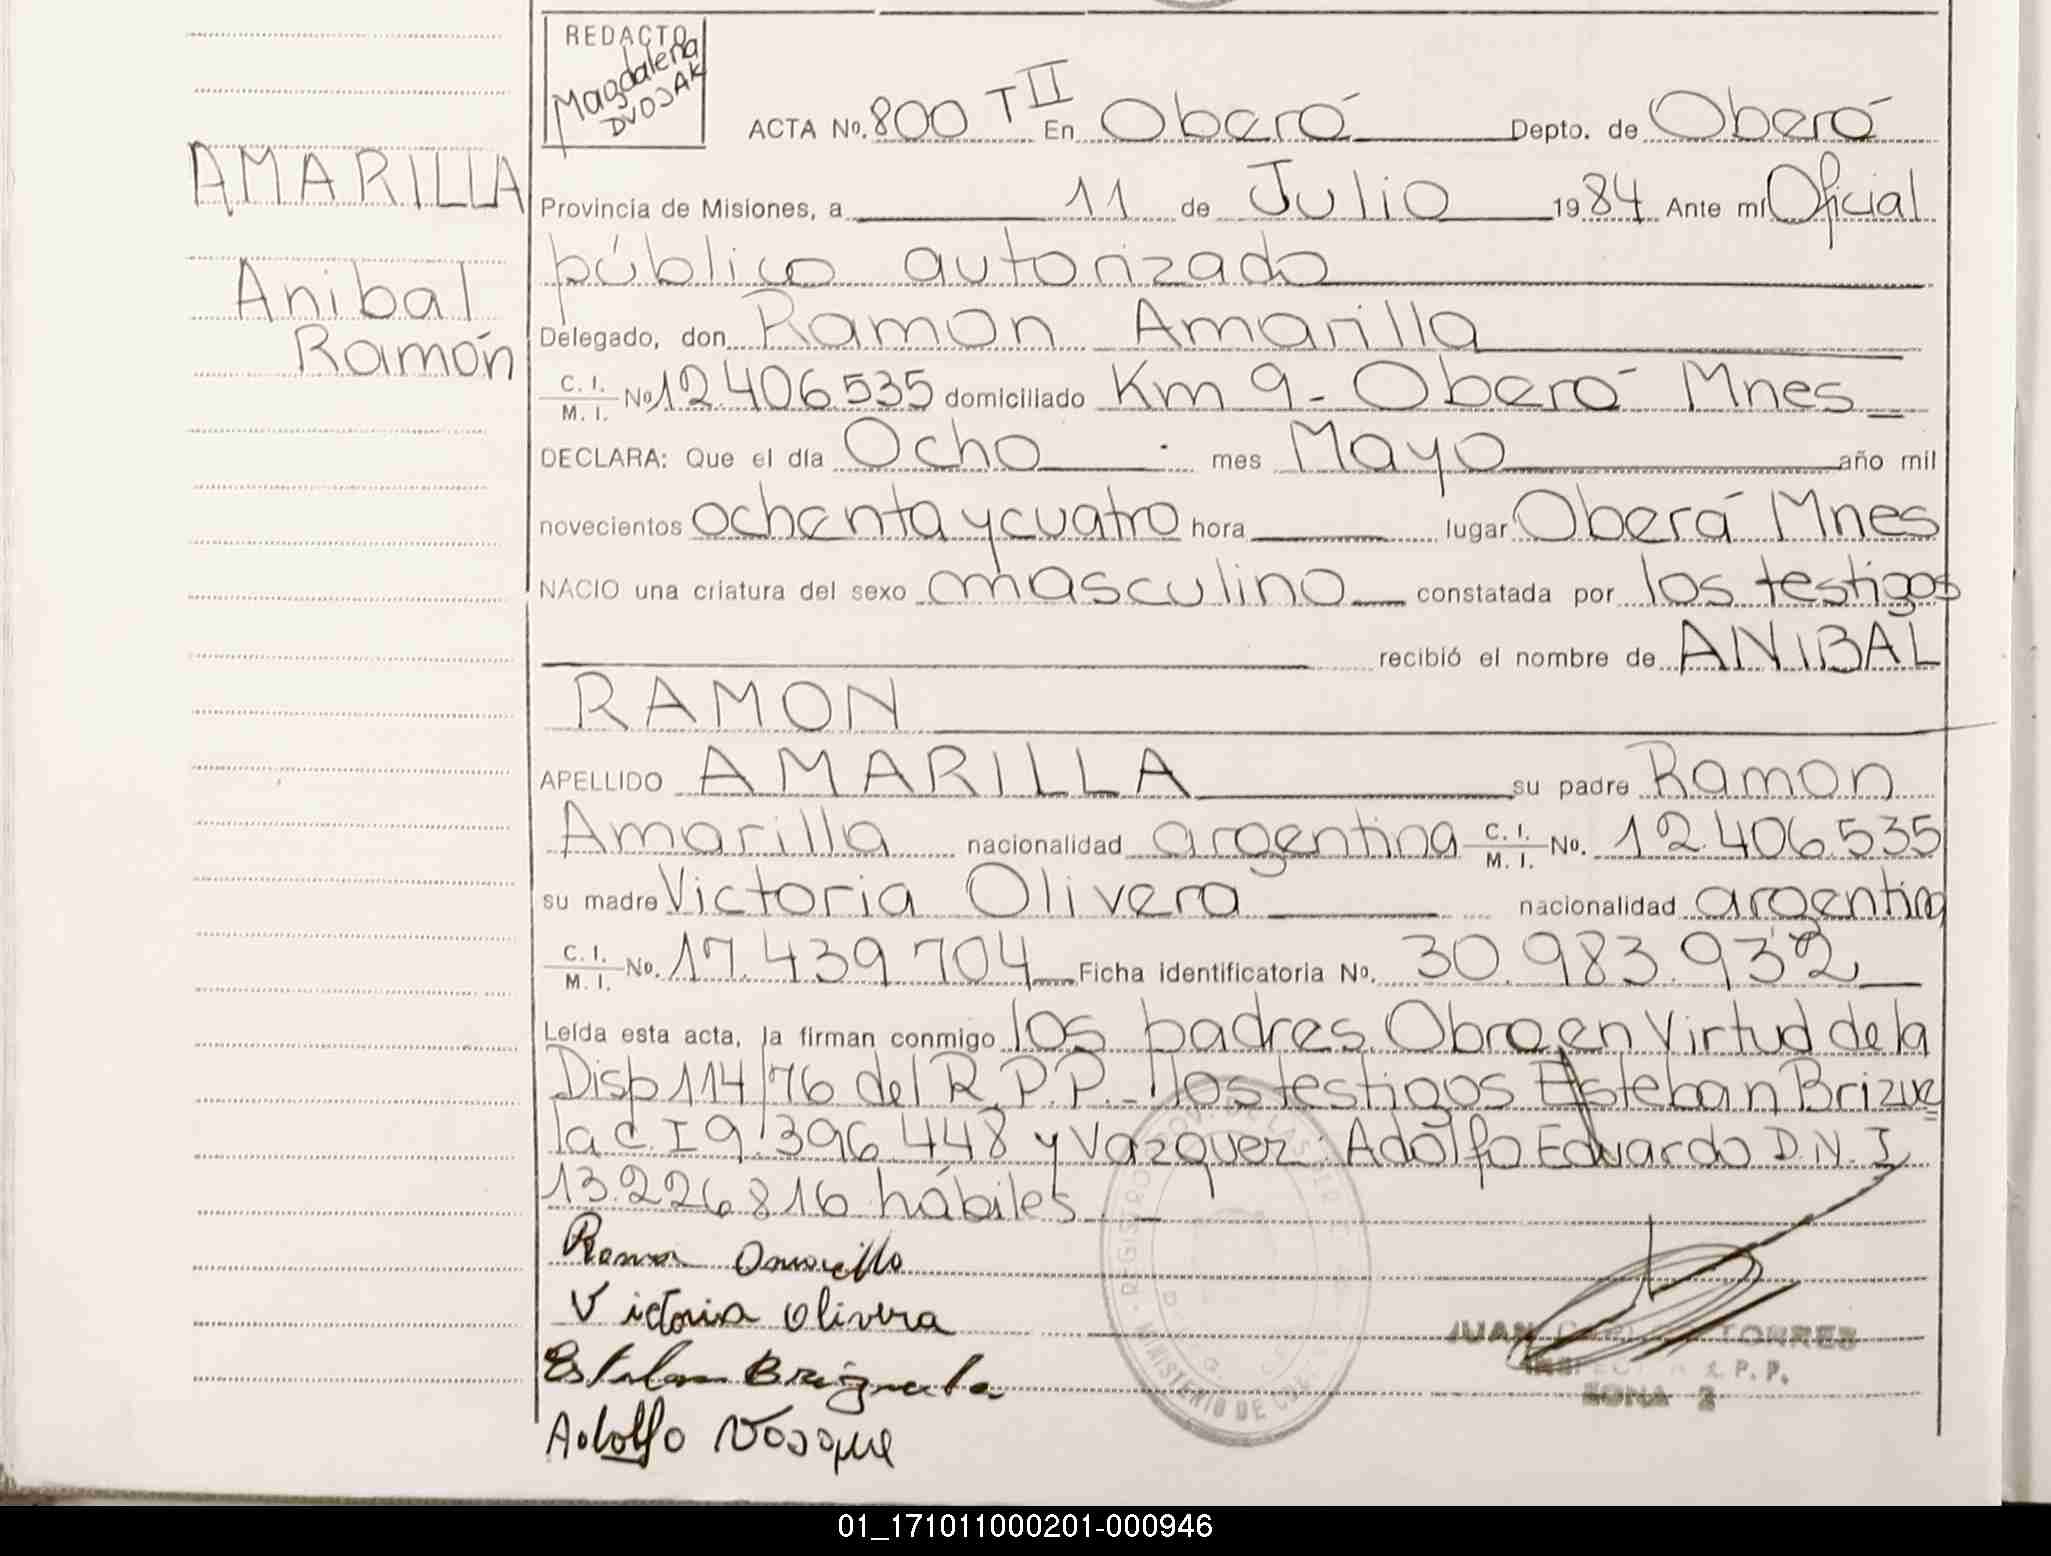 REDACTO
Magdalena
DVOJAK
ACTA No. 800 T II En Oberá Depto. de Oberá
AMARILLA
Provincia de Misiones, a 11 de Julio 1984 Ante mí Oficial
público autorizado
Anibal
Ramón
Delegado, don Ramon Amarilla
C. I. / M. I. No 12.406.535 domiciliado Km 9 - Oberá Mnes
DECLARA: Que el día Ocho mes Mayo año mil
novecientos ochenta y cuatro hora lugar Oberá Mnes
NACIO una criatura del sexo masculino constatada por los testigos
recibió el nombre de ANIBAL
RAMON
APELLIDO AMARILLA su padre Ramon
Amarilla nacionalidad argentina C. I. / M. I. No. 12.406.535
su madre Victoria Olivera nacionalidad argentina
C. I. / M. I. No. 17.439.704 Ficha identificatoria No. 30.983.932
Leída esta acta, la firman conmigo los padres. Obra en Virtud de la
Disp 114/76 del R.P.P. - los testigos Esteban Brizue
la C.I 9.396.448 y Vazquez Adolfo Eduardo D.N.I
13.226.816 hábiles.
Ramon Amarilla
Victoria Olivera
Esteban Brizuela
Adolfo
JUAN TORRES
R. P. P.
ZONA 2
REGISTRO MINISTERIO DE
01_171011000201-000946